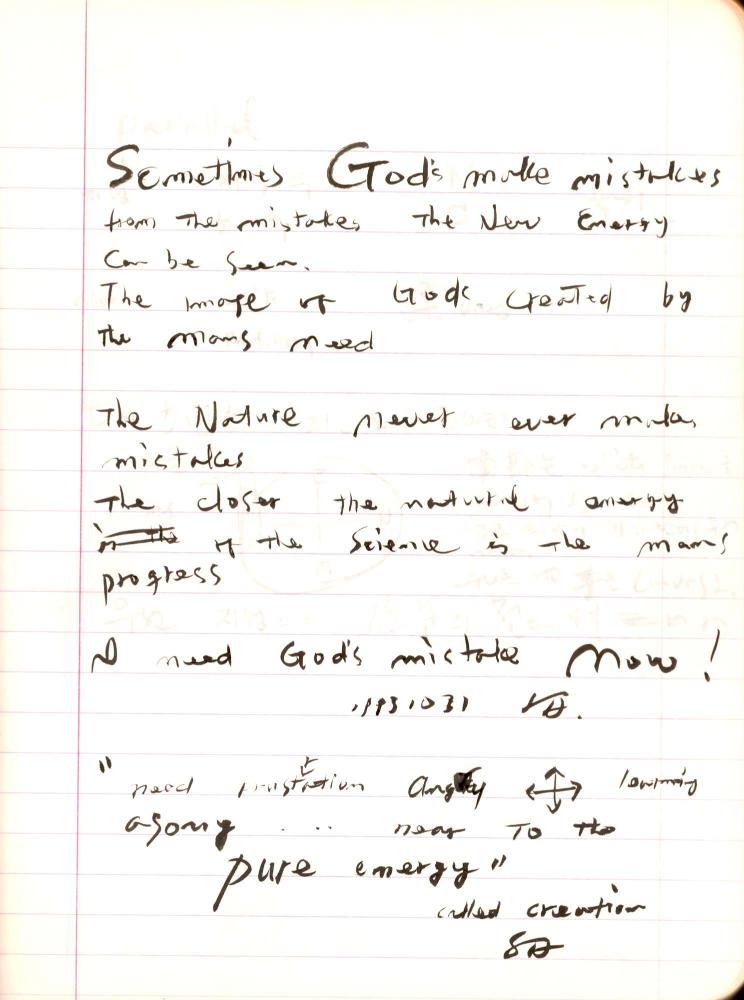 Sometimes God's make mistakes
from The mistakes The New Energy
Can be Seen.
The image of Gods created by
the mans need
The Nature never ever makes
mistakes
The closer the natural energy
in the of the Science is the mans
progress
I need God's mistake Now!
19931031
"need Angry learning
agony .... near To the
pure energy"
called creation